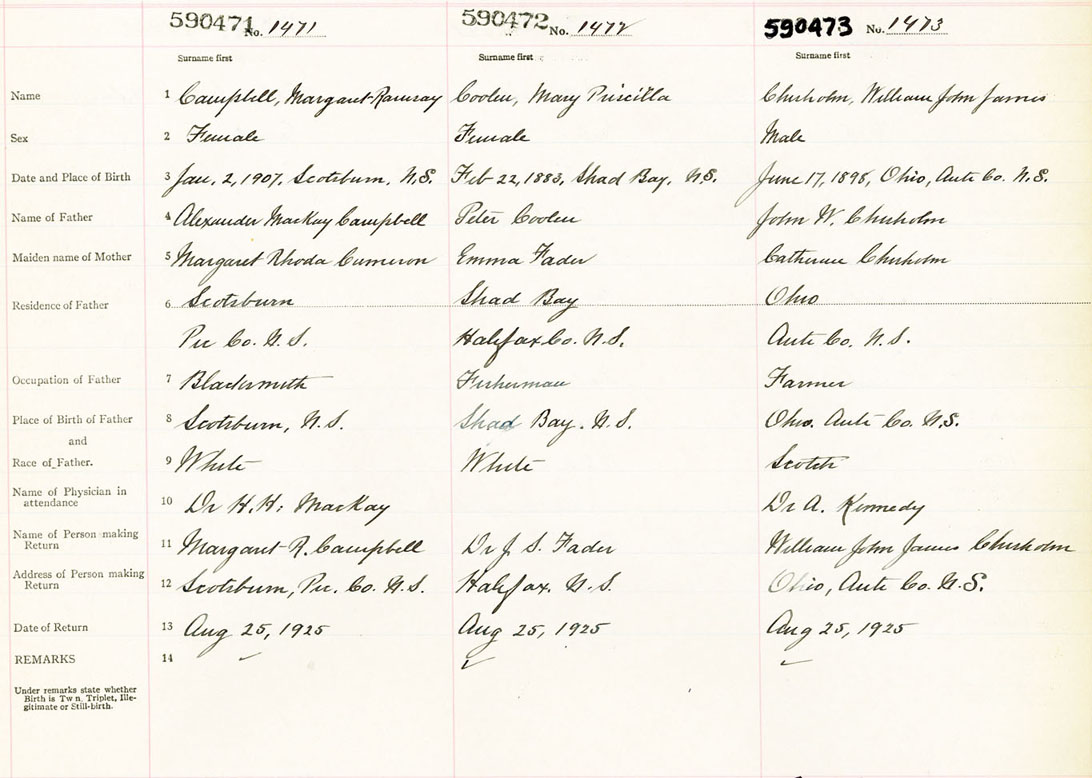 590471 No. 1471 590472 No. 1472 590473 No. 1473
Surname first Surname first Surname first
Name 1 Campbell, Margaret Ramsay Coolen, Mary Priscilla Chisholm, William John James
Sex 2 Female Female Male
Date and Place of Birth 3 Jan. 2, 1907, Scotsburn, N.S. Feb 22, 1883, Shad Bay, N.S. June 17, 1898, Ohio, Ante Co. N.S.
Name of Father 4 Alexander MacKay Campbell Peter Coolen John W. Chisholm
Maiden name of Mother 5 Margaret Rhoda Cameron Emma Fader Catherine Chisholm
Residence of Father 6 Scotsburn Shad Bay Ohio
Pic Co. N.S. Halifax Co. N.S. Ante Co. N.S.
Occupation of Father 7 Blacksmith Fisherman Farmer
Place of Birth of Father 8 Scotsburn, N.S. Shad Bay. N.S. Ohio. Ante Co. N.S.
and
Race of Father. 9 White White Scotch
Name of Physician in
attendance 10 Dr H. H. MacKay Dr A. Kennedy
Name of Person making
Return 11 Margaret R. Campbell Dr J. S. Fader William John James Chisholm
Address of Person making
Return 12 Scotsburn, Pic. Co. N.S. Halifax. N.S. Ohio, Ante Co. N.S.
Date of Return 13 Aug 25, 1925 Aug 25, 1925 Aug 25, 1925
REMARKS 14
Under remarks state whether
Birth is Tw n, Triplet, Ille-
gitimate or Still-birth.